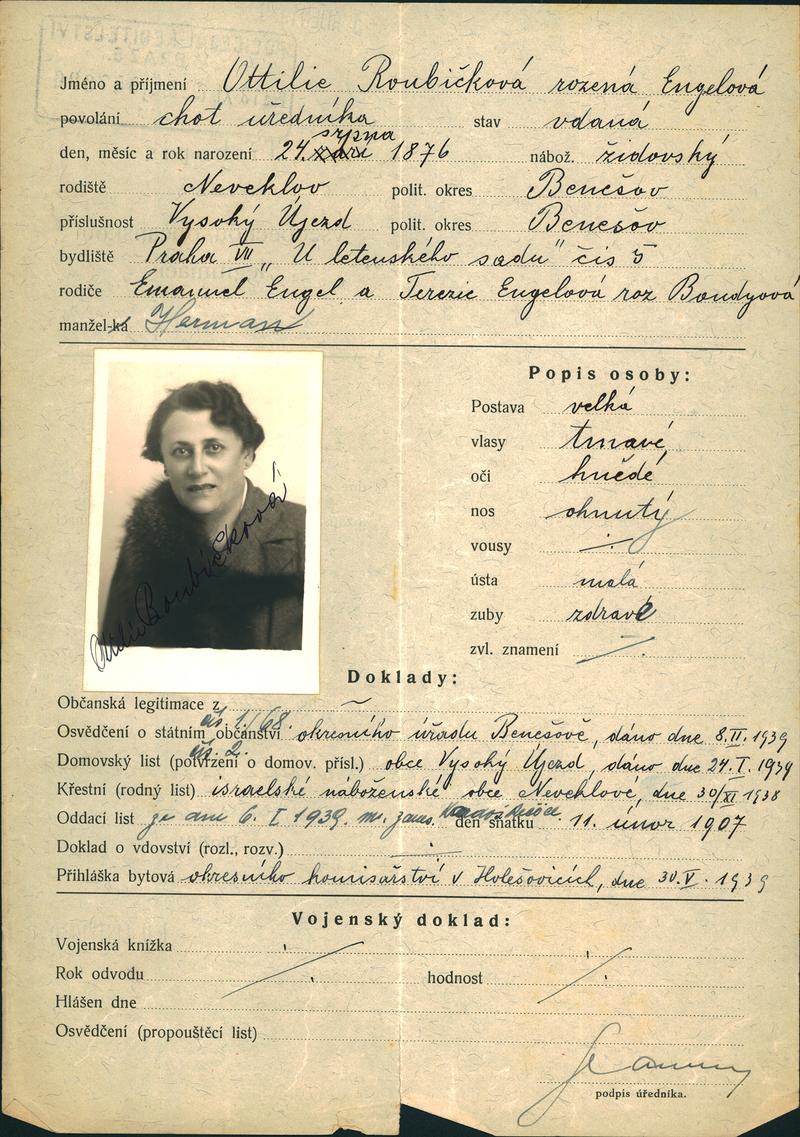 Jméno a příjmení Ottilie Roubíčková rozená Engelová
povolání chot úředníka stav vdaná
srpna
den, měsíc a rok narození 24. září 1876 nábož. židovský
rodiště Neveklov polit. okres Benešov
příslušnost Vysoký Újezd polit. okres Benešov
bydliště Praha VII „U letenského sadu" čís 5
rodiče Emanuel Engel a Terezie Engelová roz Bondyová
manžel-ka Herman
Popis osoby:
Postava velká
vlasy tmavé
oči hnědé
nos ohnutý
vousy
ústa malá
zuby zdravé
zvl. znamení
Ottilie Roubíčková
Doklady:
Občanská legitimace z
čís 1./68.
Osvědčení o státním občanství okresního úřadu Benešově, dáno dne 8.II.1939
čís. 2.
Domovský list (potvrzení o domov. přísl.) obce Vysoký Újezd, dáno dne 24.I.1939
Křestní (rodný list) israelské náboženské obce Neveklově, dne 30/XI 1938
Oddací list ze dne 6. I 1939. den sňatku 11. únor 1907
Doklad o vdovství (rozl., rozv.)
Přihláška bytová okresního komisařství v Holešovicích, dne 30.V.1939
Vojenský doklad:
Vojenská knížka
Rok odvodu hodnost
Hlášen dne
Osvědčení (propouštěcí list)
podpis úředníka.